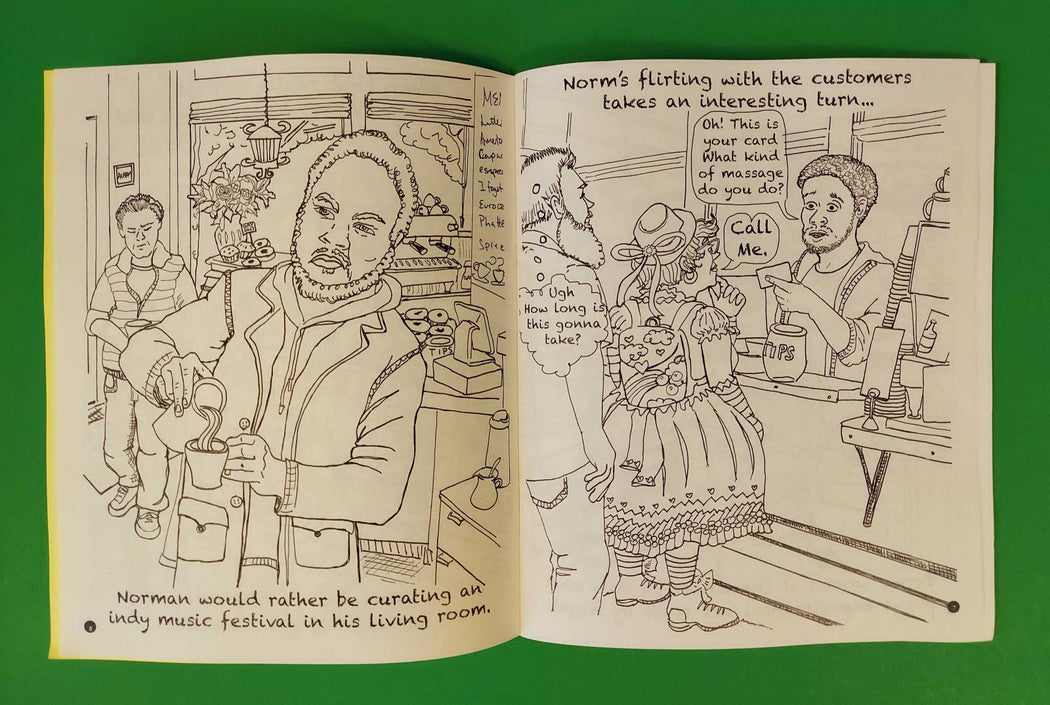 Norman would rather be curating an
indy music festival in his living room.
TIPS
Norm's flirting with the customers
takes an interesting turn...
Oh! This is
your card
What kind
of massage
do you do?
Call
Me.
Ugh
How long is
this gonna
take?
TIPS